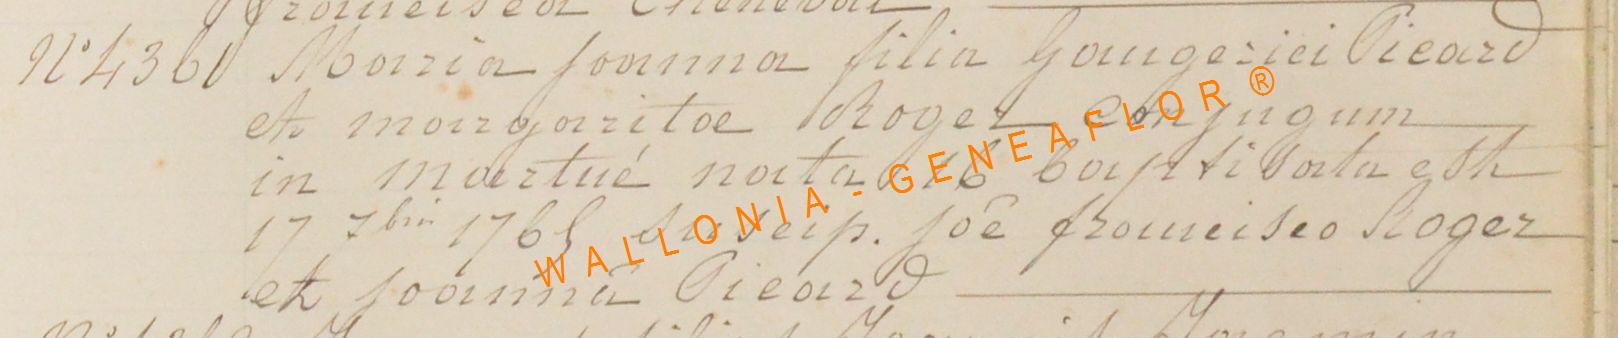 francisca Cheneval
N° 4360 Maria Joanna filia Gaugerici Picard
et margaritae Roger conjugum
in martué nata 16 baptisata est
17 7bris 1765 suscip. Joê francisco Roger
et Joannâ Picard
WALLONIA-GENEAFLOR®